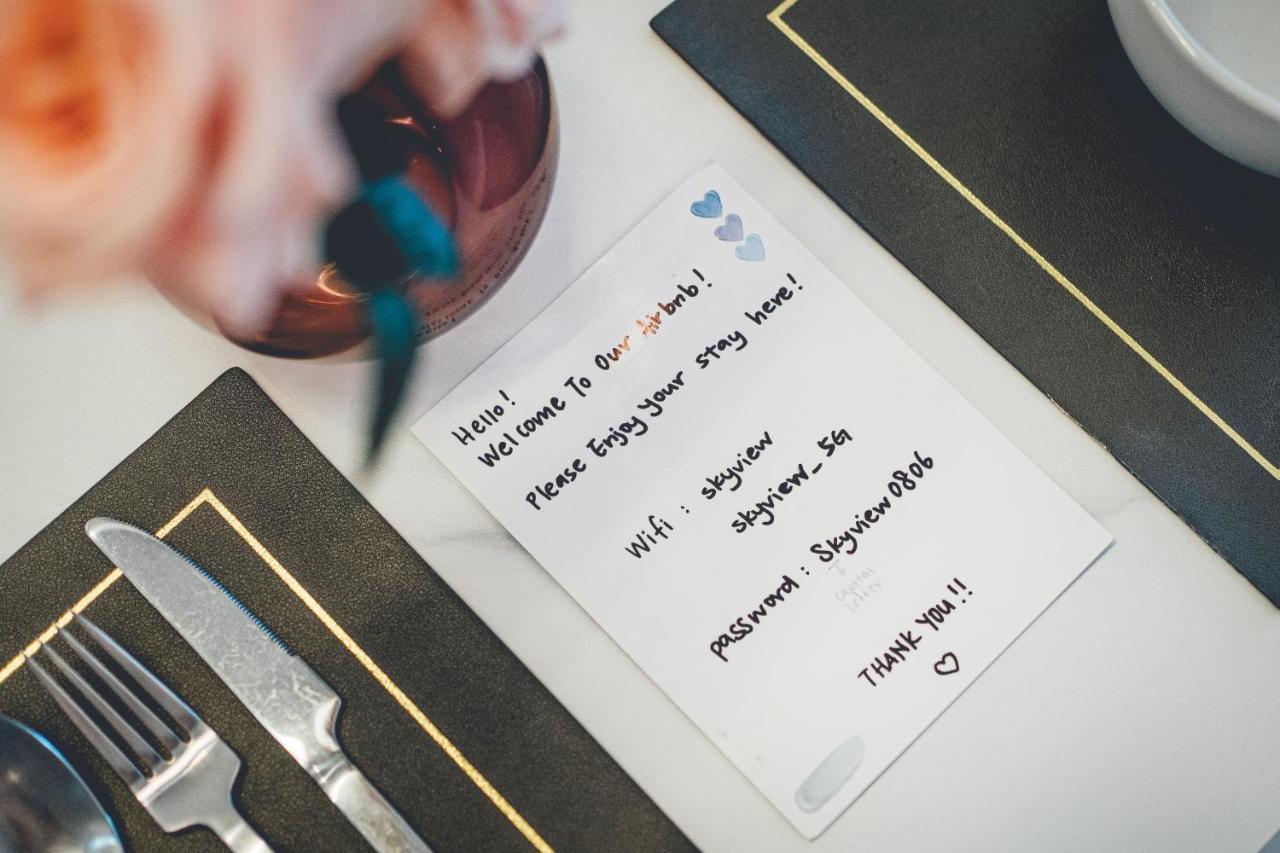 Hello!
Welcome To Our Airbnb!
Please Enjoy your stay here!
Wifi : skyview
skyview_5G
password : Skyview0806
↓
capital
letter
THANK YOU!!
♡